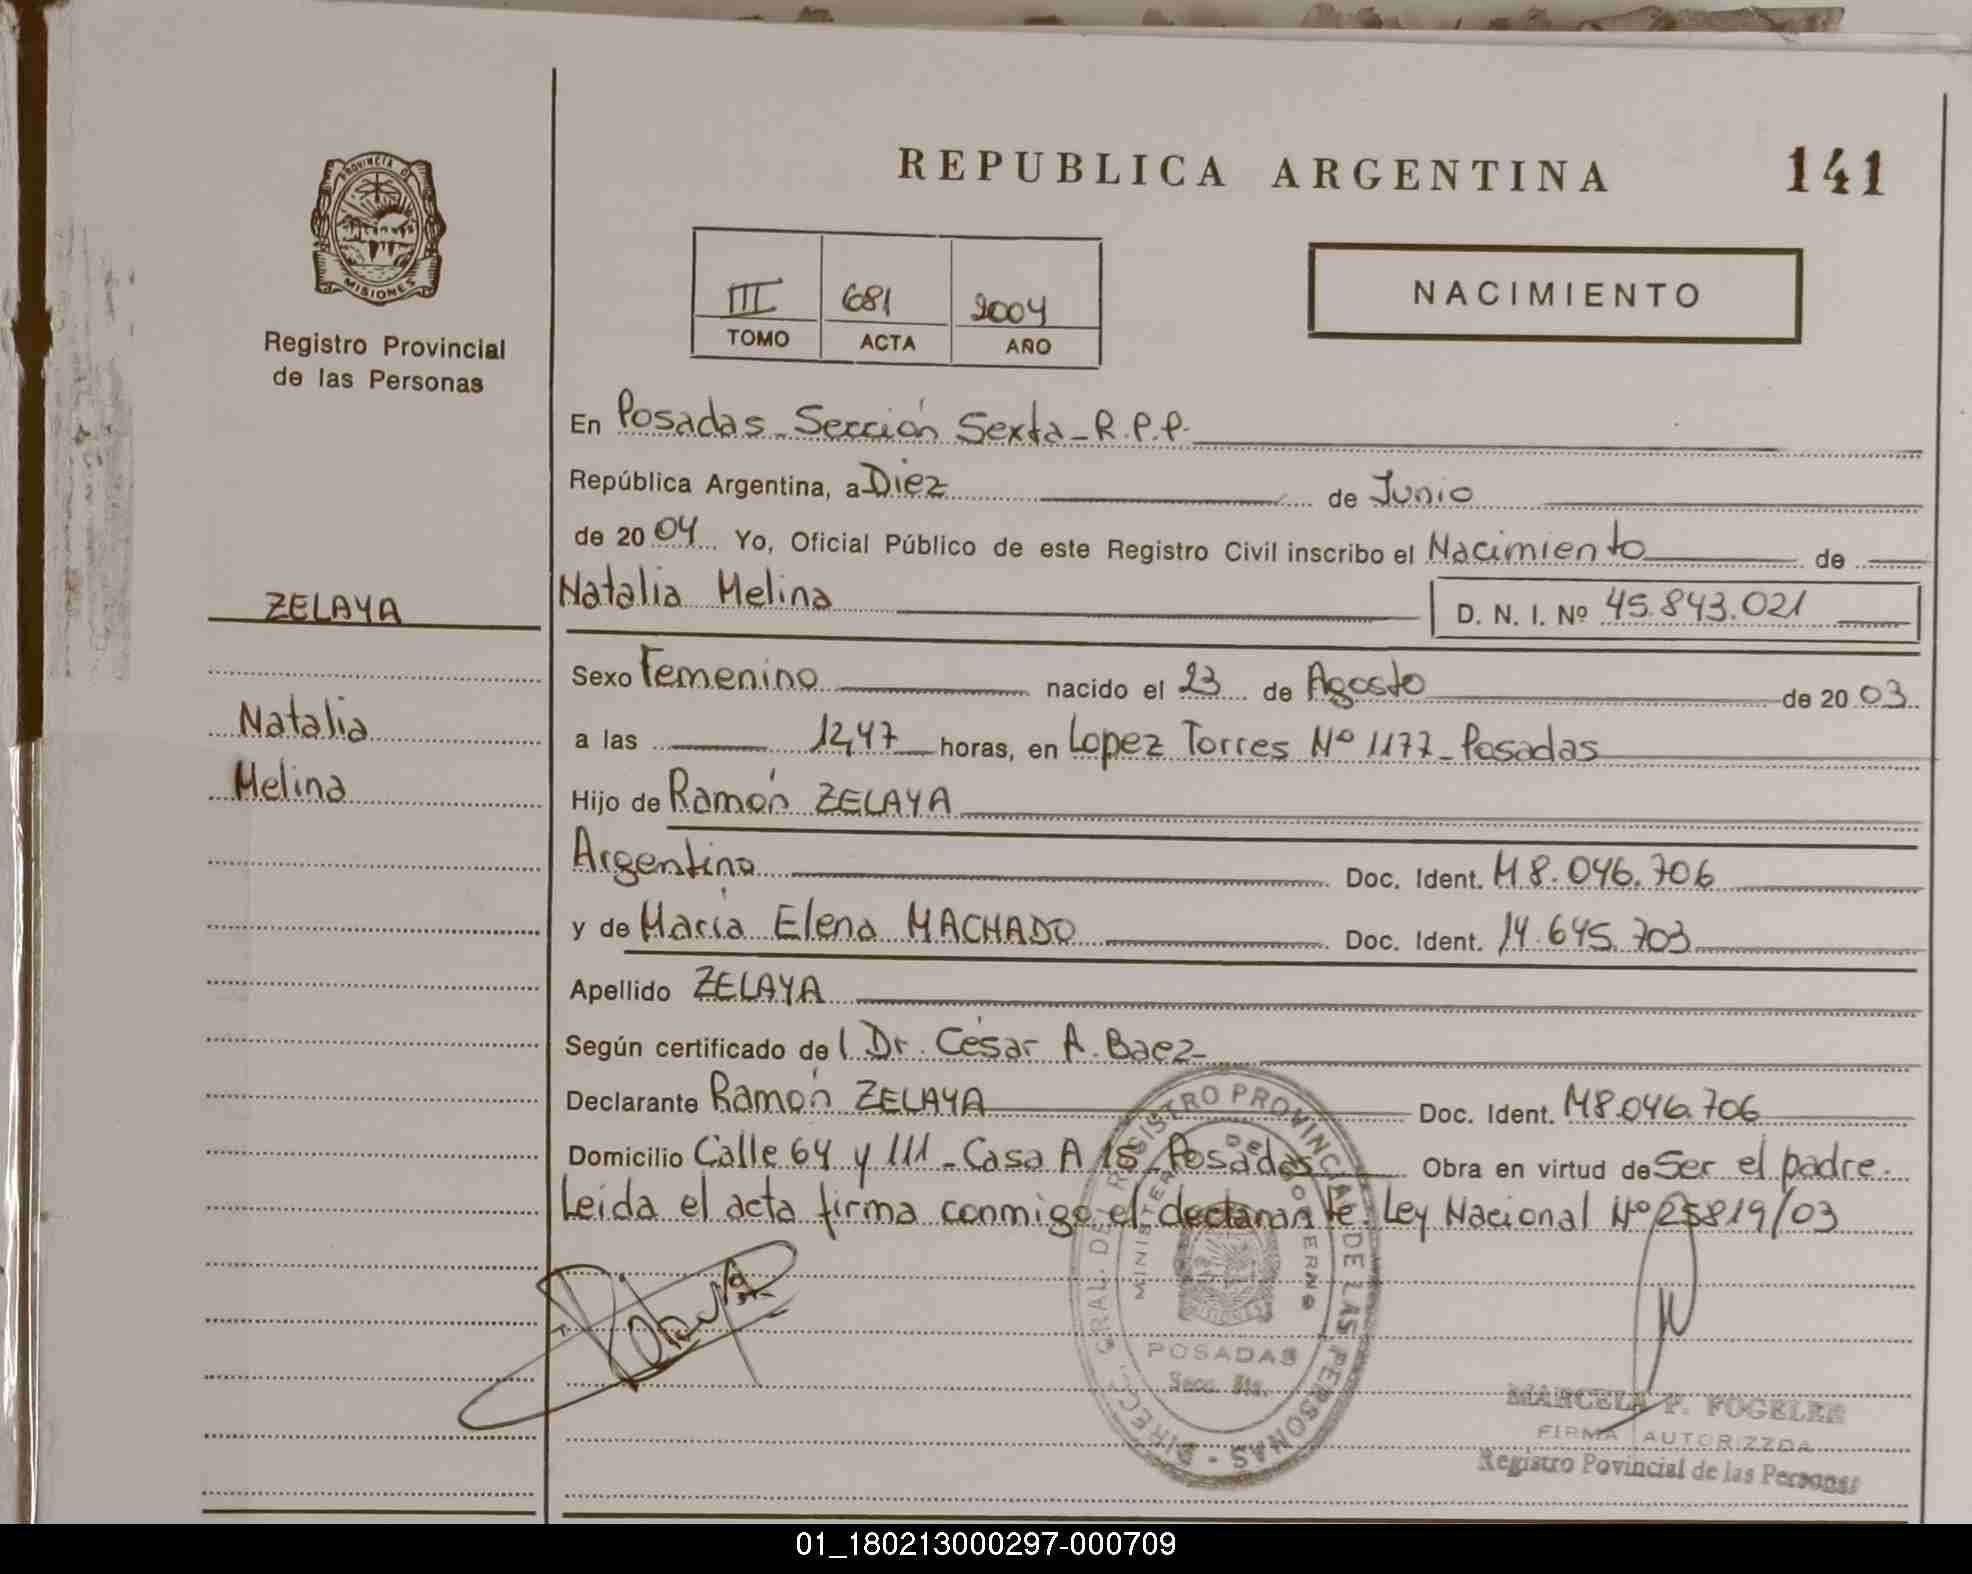 REPUBLICA ARGENTINA
141
PROVINCIA DE
MISIONES
Registro Provincial
de las Personas
III 681 2004
TOMO ACTA AÑO
NACIMIENTO
En Posadas - Sección Sexta - R.P.P.
República Argentina, a Diez de Junio
de 2004 Yo, Oficial Público de este Registro Civil inscribo el Nacimiento de
ZELAYA
Natalia Melina
D. N. I. Nº 45.843.021
Sexo Femenino nacido el 23 de Agosto de 2003
Natalia
a las 12,47 horas, en Lopez Torres Nº 1177 - Posadas
Melina
Hijo de Ramón ZELAYA
Argentino Doc. Ident. M8.046.706
y de María Elena MACHADO Doc. Ident. 14.645.703
Apellido ZELAYA
Según certificado del Dr. César A. Baez
Declarante Ramón ZELAYA Doc. Ident. M8.046.706
Domicilio Calle 64 y 111 - Casa A 15 - Posadas Obra en virtud de Ser el padre.
Leida el acta firma conmigo el declarante. Ley Nacional Nº 25819/03
DIRECC. GRAL. DE REGISTRO PROVINCIAL DE LAS PERSONAS
MINISTERIO DE GOBIERNO
POSADAS
Secc. 6ta.
MARCELA P. FOGELER
FIRMA AUTORIZZDA
Registro Povincial de las Personas
01_180213000297-000709